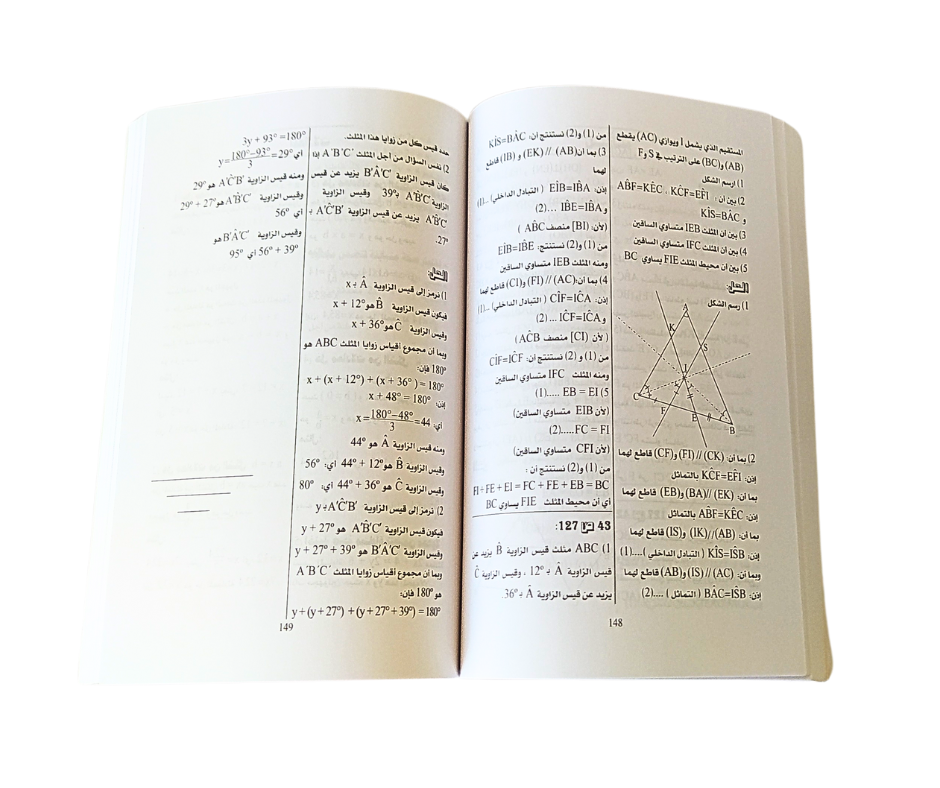 المستقيم الذي يشمل I ويوازي (AC) يقطع
(AB) و(BC) على الترتيب في S و F
1) ارسم الشكل
2) بين أن: AB̂F=KÊC ، KĈF=EF̂I
و KÎS=BÂC
3) بين أن المثلث IEB متساوي الساقين
4) بين أن المثلث IFC متساوي الساقين
5) بين أن محيط المثلث FIE يساوي BC
الحل:
1) رسم الشكل
A
K
S
I
C
F
E
B
2) بما أن: (CK) // (FI) و(CF) قاطع لهما
إذن: KĈF=EF̂I بالتماثل
بما أن: (EK) //(BA) و(EB) قاطع لهما
إذن: AB̂F=KÊC بالتماثل
بما أن: (AB)//(IK) و(IS) قاطع لهما
إذن: KÎS=IŜB ( التبادل الداخلي)....(1)
وبما أن: (AC) // (IS) و(AB) قاطع لهما
إذن: BÂC=IŜB ( التماثل ) ....(2)
من (1) و(2) نستنتج أن: KÎS=BÂC
3) بما أن(AB) // (EK) و (IB) قاطع
لهما
إذن: EÎB=IB̂A ( التبادل الداخلي) ...(1)
و IB̂E=IB̂A ...(2)
(لأن: [BI] منصف AB̂C )
من (1) و(2) نستنتج: EÎB=IB̂E
ومنه المثلث IEB متساوي الساقين
4) بما أن:(AC) // (FI) و(CI) قاطع لهما
إذن: CÎF=IĈA ( التبادل الداخلي) ...(1)
و IĈF=IĈA ... (2)
( لأن [CI] منصف AĈB )
من (1) و (2) نستنتج أن: CÎF=IĈF
ومنه المثلث IFC متساوي الساقين
5) EB = EI .....(1)
(لأن EIB متساوي الساقين)
FC = FI .....(2)
(لأن CFI متساوي الساقين)
من (1) و(2) نستنتج أن :
FI + FE + EI = FC + FE + EB = BC
أي أن محيط المثلث FIE يساوي BC
43 ص 127:
1) ABC مثلث قيس الزاوية B̂ يزيد عن
قيس الزاوية Â بـ 12° ، وقيس الزاوية Ĉ
يزيد عن قيس الزاوية Â بـ 36°.
148
حدد قيس كل من زوايا هذا المثلث.
2) نفس السؤال من أجل المثلث A'B'C' إذا
كان قيس الزاوية B'Â'C' يزيد عن قيس
الزاوية A'B̂'C' بـ 39° وقيس الزاوية
A'B̂'C' يزيد عن قيس الزاوية A'Ĉ'B' بـ
27°.
الحل:
1) نرمز إلى قيس الزاوية Â بـ x
فيكون قيس الزاوية B̂ هو x + 12°
وقيس الزاوية Ĉ هو x + 36°
وبما أن مجموع أقياس زوايا المثلث ABC هو
180° فإن:
x + (x + 12°) + (x + 36° ) = 180°
إذن: x + 48° = 180°
أي: x = 180°−48°/3 = 44
ومنه قيس الزاوية Â هو 44°
وقيس الزاوية B̂ هو 12° + 44° أي: 56°
وقيس الزاوية Ĉ هو 36° + 44° أي: 80°
2) نرمز إلى قيس الزاوية A'Ĉ'B' بـ y
فيكون قيس الزاوية A'B̂'C' هو y + 27°
وقيس الزاوية B'Â'C' هو y + 27° + 39°
وبما أن مجموع أقياس زوايا المثلث A'B'C'
هو 180° فإن:
y + (y + 27°) + (y + 27° + 39°) = 180°
3y + 93° = 180°
أي y = 180°−93°/3 = 29°
ومنه قيس الزاوية A'Ĉ'B' هو 29°
وقيس الزاوية A'B̂'C' هو 27° + 29°
أي 56°
وقيس الزاوية B'Â'C' هو
56° + 39° أي 95°
149